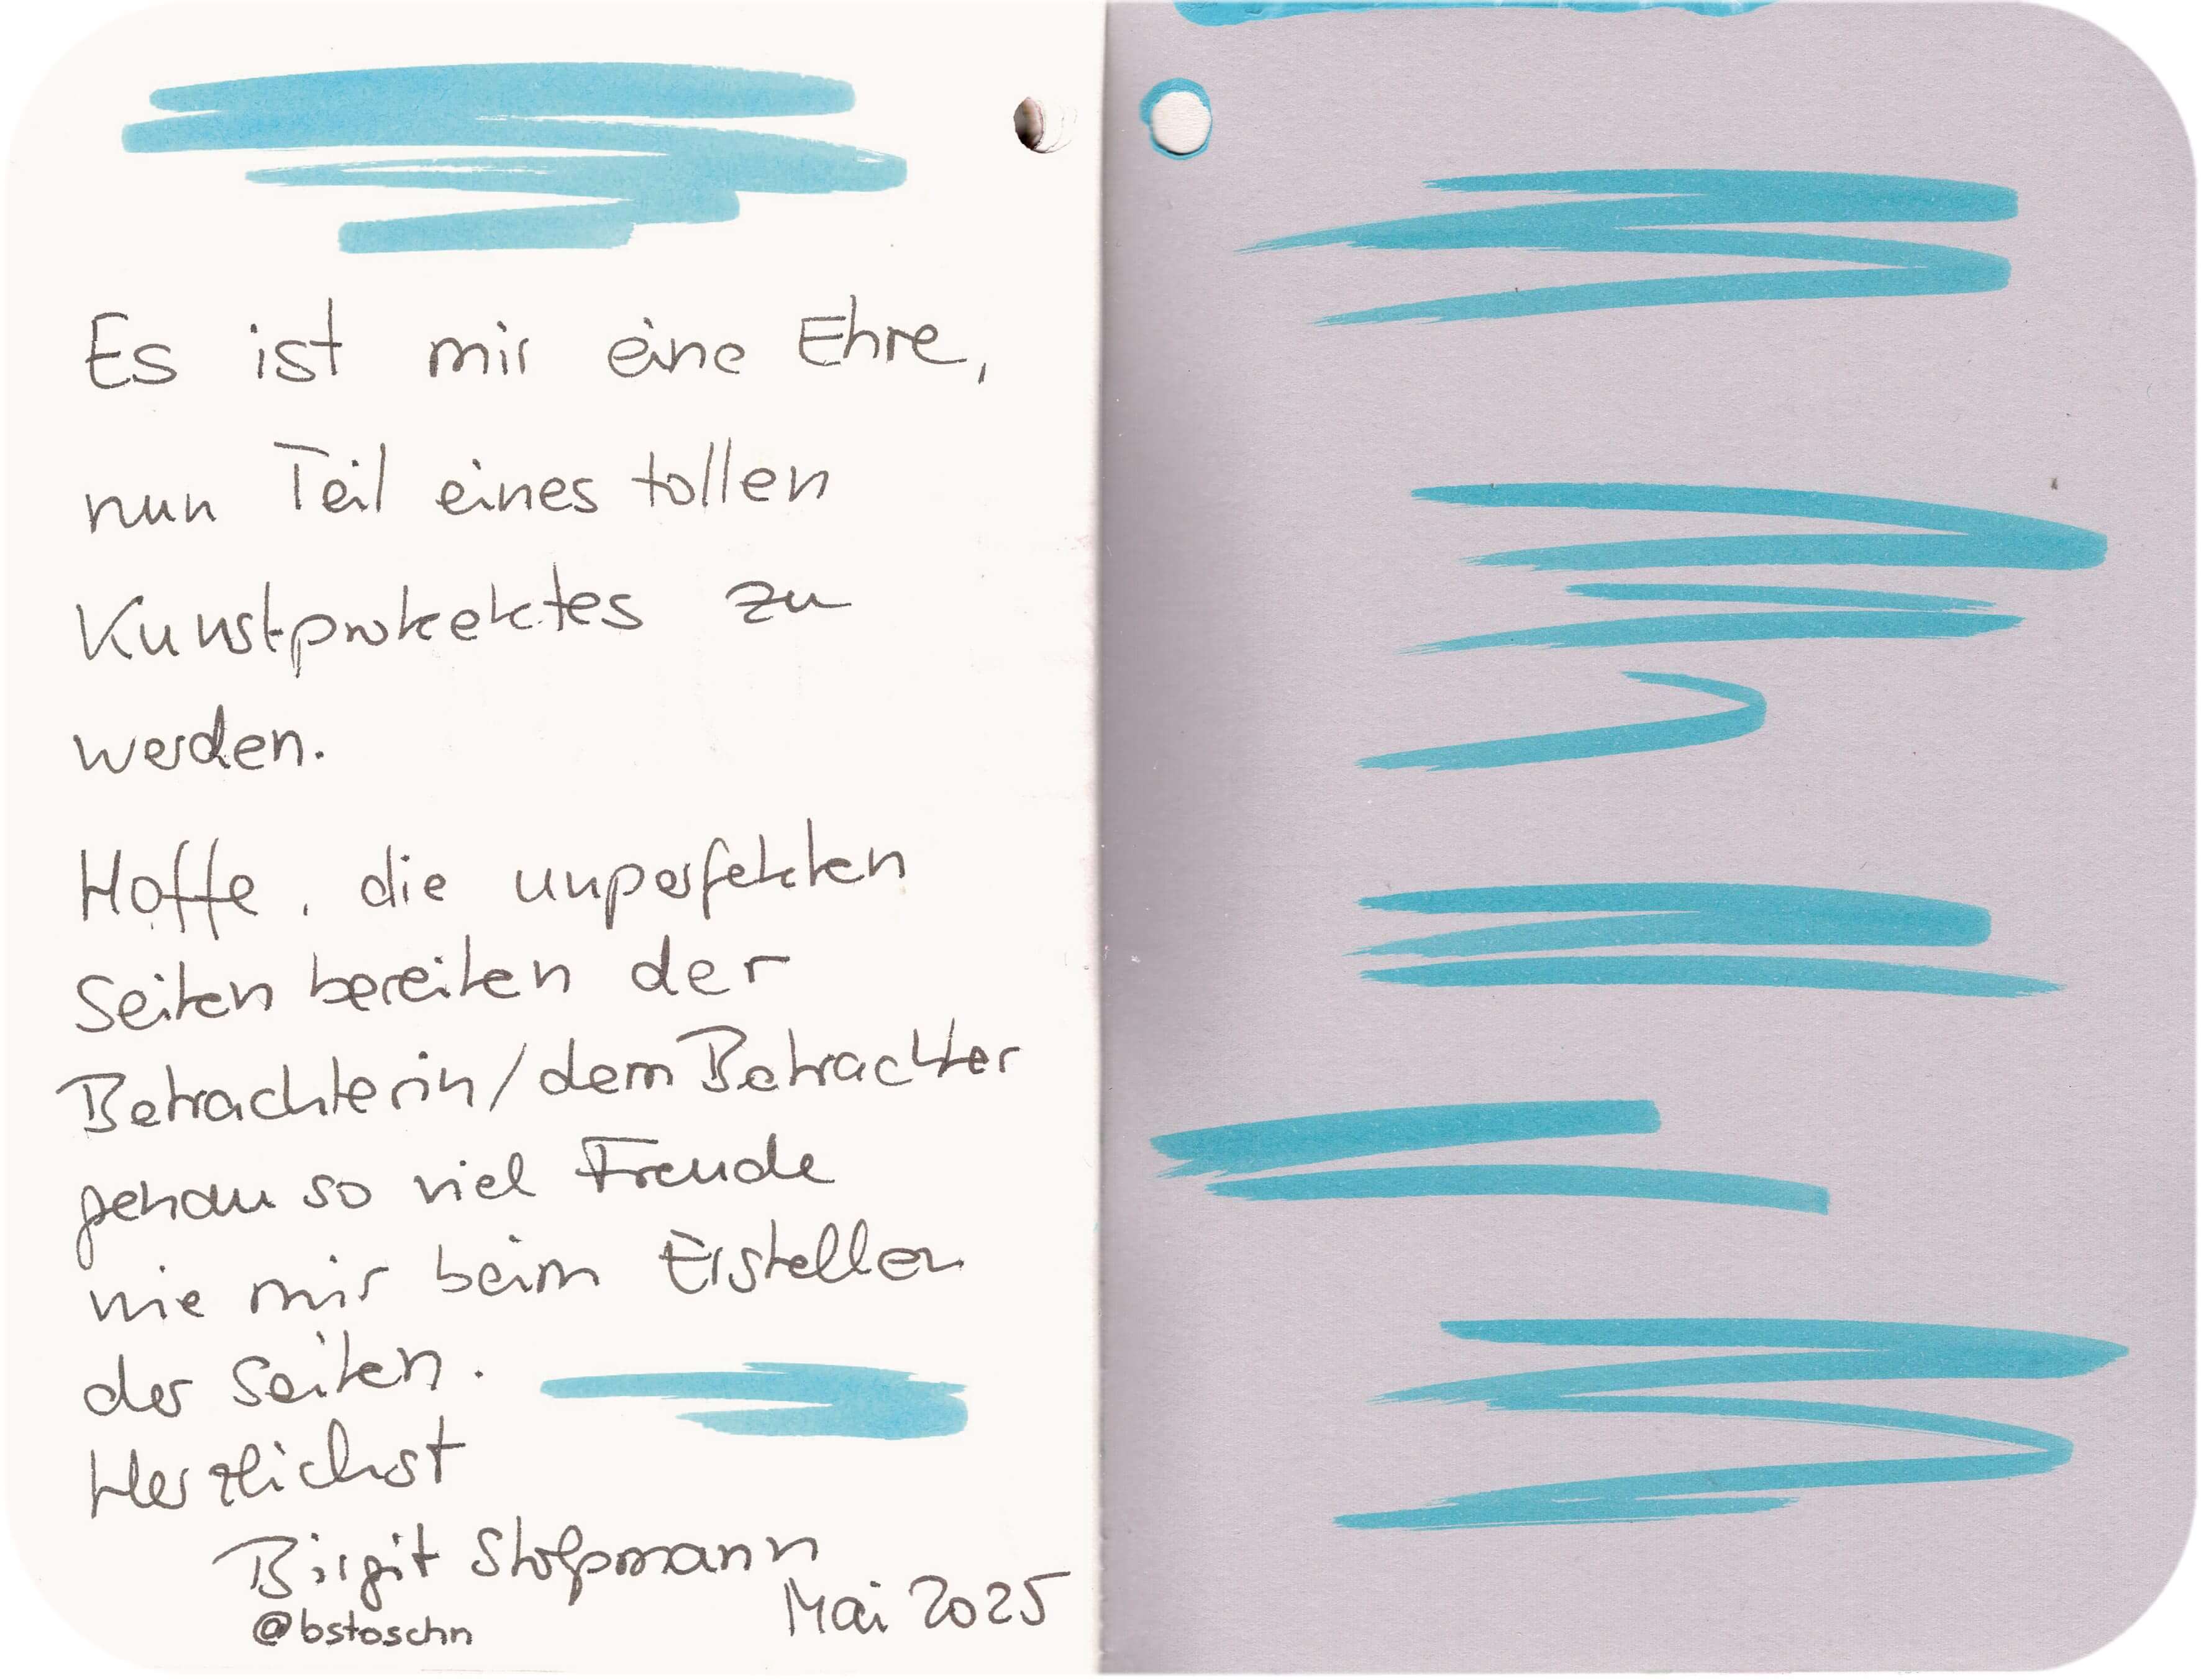 Es ist mir eine Ehre,
nun Teil eines tollen
Kunstprokektes zu
werden.
Hoffe, die unperfekten
Seiten bereiten der
Betrachterin/dem Betrachter
genau so viel Freude
wie mir beim Erstellen
der Seiten.
Herzlichst
Birgit
@bstoschn
Mai 2025